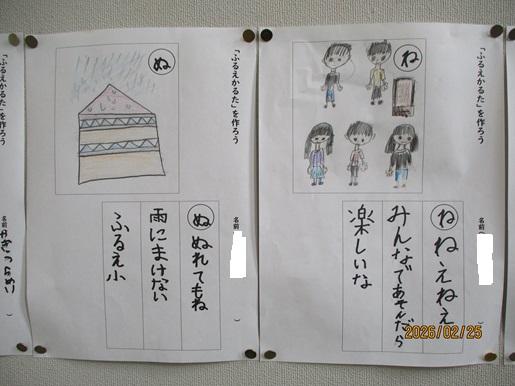 「ふるえかるた」を作ろう
ね
名前
ね ねえねえ
みんなであそんだら
楽しいな
「ふるえかるた」を作ろう
ぬ
名前
ぬ ぬれてもね
雨にまけない
ふるえ小
「ふるえかるた」を作ろう
名前
2026/02/25